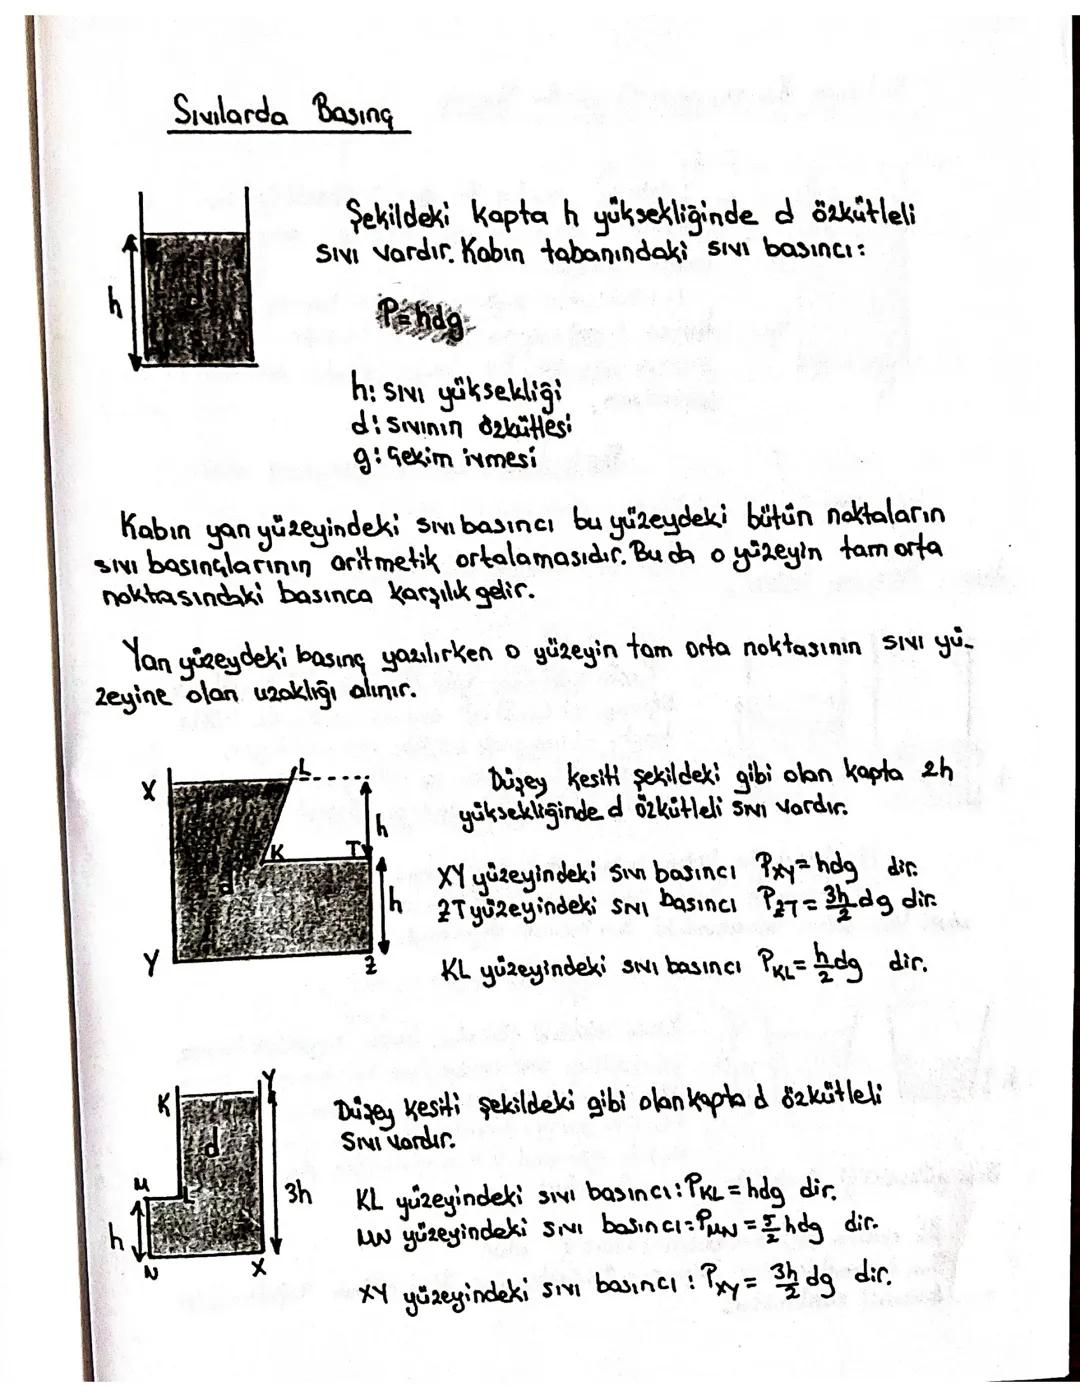 Sıvılarda Basınç
Şekildeki kapta h yüksekliğinde d özkütleli
sıvı vardır. Kabın tabanındaki sıvı basıncı:
h
d
P=hdg
h: sıvı yüksekliği
d: sıvının özkütlesi
g: çekim ivmesi
Kabın yan yüzeyindeki sıvı basıncı bu yüzeydeki bütün noktaların
sıvı basınçlarının aritmetik ortalamasıdır. Bu da o yüzeyin tam orta
noktasındaki basınca karşılık gelir.
Yan yüzeydeki basınç yazılırken o yüzeyin tam orta noktasının sıvı yü-
zeyine olan uzaklığı alınır.
X
L
h
K
T
d
h
Y
Z
Düşey kesiti şekildeki gibi olan kapta 2h
yüksekliğinde d özkütleli sıvı vardır.
XY yüzeyindeki sıvı basıncı Pxy=hdg dir.
ZT yüzeyindeki sıvı basıncı PZT=3h/2 dg dir.
KL yüzeyindeki sıvı basıncı PKL=h/2 dg dir.
K
Y
d
M
L
3h
h
N
X
Düşey kesiti şekildeki gibi olan kapta d özkütleli
sıvı vardır.
KL yüzeyindeki sıvı basıncı: PKL=hdg dir.
MN yüzeyindeki sıvı basıncı: PMN=5/2 hdg dir.
XY yüzeyindeki sıvı basıncı: Pxy=3h/2 dg dir.